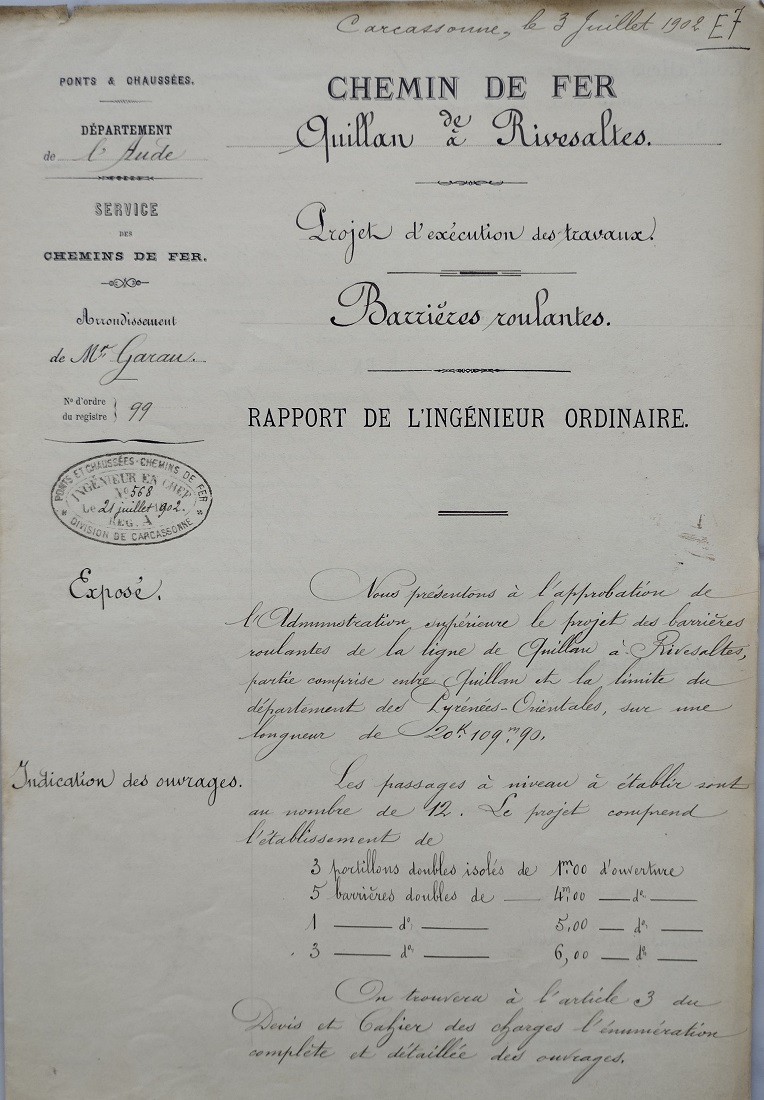 Carcassonne, le 3 Juillet 1902
E7
PONTS & CHAUSSÉES.
DÉPARTEMENT
de l'Aude
SERVICE
DES
CHEMINS DE FER.
Arrondissement
de Mr Garau.
No d'ordre
du registre } 99
PONTS ET CHAUSSÉES - CHEMINS DE FER
INGÉNIEUR EN CHEF
No 568
Le 21 juillet 1902.
REG. A
DIVISION DE CARCASSONNE
CHEMIN DE FER
de
Quillan à Rivesaltes.
Projet d'exécution des travaux.
Barrières roulantes.
RAPPORT DE L'INGÉNIEUR ORDINAIRE.
Exposé.
Nous présentons à l'approbation de
l'Administration supérieure le projet des barrières
roulantes de la ligne de Quillan à Rivesaltes,
partie comprise entre Quillan et la limite du
département des Pyrénées-Orientales, sur une
longueur de 20k.109m.90.
Indication des ouvrages.
Les passages à niveau à établir sont
au nombre de 12. Le projet comprend
l'établissement de
3 portillons doubles isolés de 1m.00 d'ouverture
5 barrières doubles de — 4m.00 — do —
1 — do — 5,00 — do —
3 — do — 6,00 — do —
On trouvera à l'article 3 du
Devis et Cahier des charges l'énumération
complète et détaillée des ouvrages.